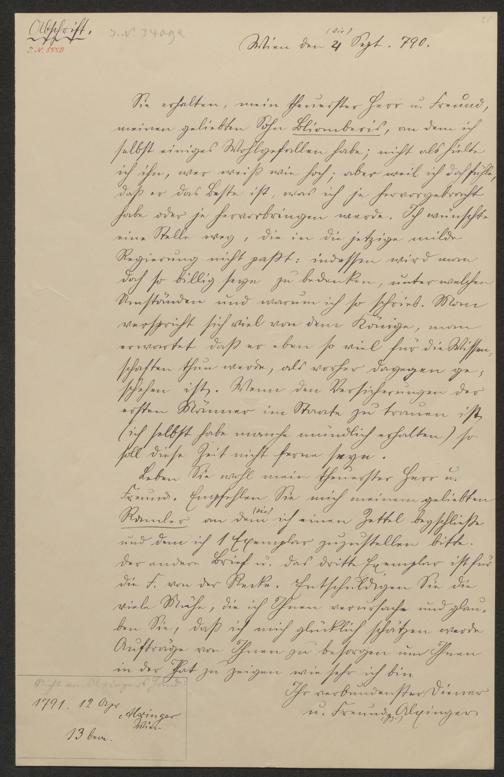 Abschrift.
I.N. 34092
I.N. 5550
(sic)
Wien den 21 Sept. 790.
Sie erhalten, mein theuerster Herr u. Freund,
meinen geliebten Sohn Bliomberis, an dem ich
selbst einiges Wohlgefallen habe; nicht als hielte
ich ihn, wer weiß wie hoch; aber weil ich doch fühle,
daß er das Beste ist, was ich je hervorgebracht
habe oder je hervorbringen werde. Ich wünschte
eine Stelle weg, die in die jetzige milde
Regierung nicht paßt: indessen wird man
doch so billig seyn zu bedenken, unter welchen
Umständen und warum ich so schrieb. Man
verspricht sich viel von dem Könige, man
erwartet daß er eben so viel für die Wissen-
schaften thun werde, als vorher dagegen ge-
schehen ist. Wenn den Versicherungen der
ersten Männer im Staate zu trauen ist,
(ich selbst habe manche mündlich erhalten) so
soll diese Zeit nicht ferne seyn.
Leben Sie wohl mein theuerster Herr u.
Freund. Empfehlen Sie mich meinem geliebten
Ramler an dem (sic) ich einen Zettel beyschließe
und dem ich 1 Exemplar zuzustellen bitte.
Der andere Brief u. das dritte Exemplar ist für
die F. von der Recke. Entschuldigen Sie die
viele Mühe, die ich Ihnen verursache und glau-
ben Sie, daß ich mich glücklich schätzen werde
Aufträge von Ihnen zu besorgen und Ihnen
in der That zu zeigen wie sehr ich bin
Ihr verbundenster Diener
u. Freund Alxinger
Nicht von Alxingers Hand
1791. 12 Apr
Alxinger
Wien
13 bew.